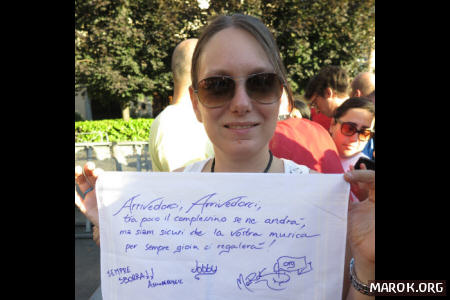 Arrivedorci, Arrivedorci,
tra poco il complessino se ne andrà,
ma siam sicuri de la vostra musica
per sempre gioia ci regalerà!
SEMPRE
SBORRA!!
Jobby
org
MAROK.ORG